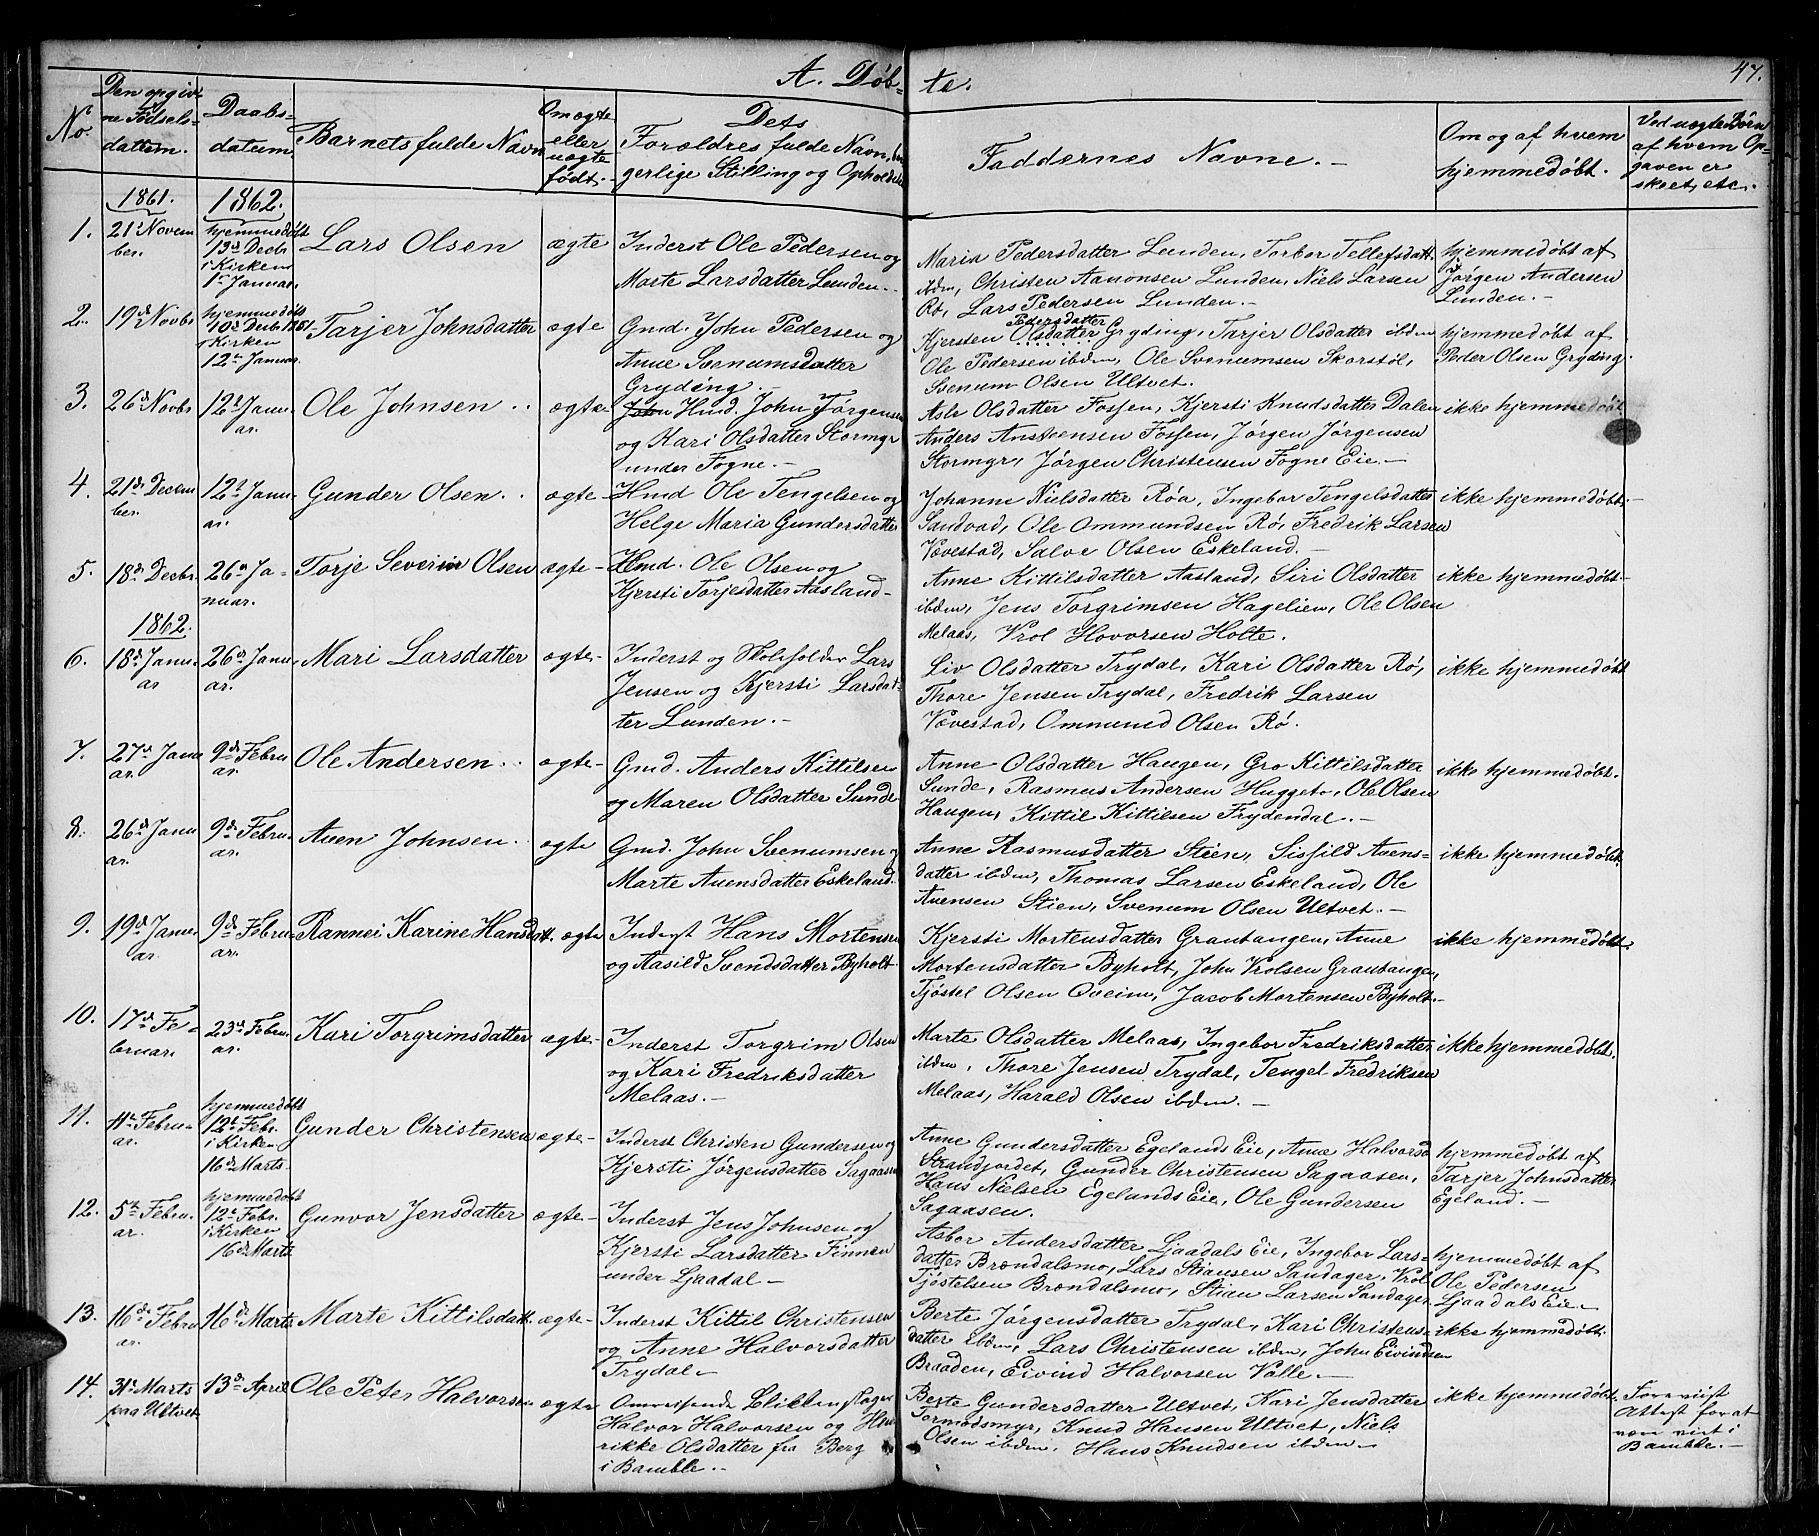 A. Døb-
te.
47.
No.
Den opgiv-
ne Fødsels-
dattum.
Daabs-
datum
Barnets fulde Navn
Om ægte
eller
uægte
født.
Dets
Forældres fulde Navn, bor-
gerlige Stilling og Opholds
Faddernes Navne.
Om og af hvem
hjemmedøbt.
Ved uægte Børn
af hvem Op-
gaven er
skeet, etc.
1861.
1862.
1.
21de Novem
ber.
hjemmedøbt
13de Decbr
i Kirken
1ste Januar.
Lars Olsen
ægte
Inderst Ole Pedersen og
Marte Larsdatter Lunden.
Maria Pedersdatter Lunden, Torbor Tellefsdatt.
ibdm, Christen Aanonsen Lunden, Niels Larsen
Rø, Lars Pedersen Lunden.
hjemmedøbt af
Jørgen Andersen
Lunden.
2.
19de Novbr
hjemmedøbt
10de Decbr 1861
i Kirken
12te Januar.
Tarjer Johnsdatter
ægte
Gmd. John Pedersen og
Anne Svenumsdatter
Gryding.
Kjersten Pedersdatter
Olsdatter Gryding, Tarjer Olsdatter ibdm
Ole Pedersen ibdm, Ole Svenumsen Skorstøl,
Svenum Olsen Ultvet.
hjemmedøbt af
Peder Olsen Gryding.
3.
26de Novbr
12te Janu-
ar.
Ole Johnsen
ægte
John Hmd. John Jørgensen
og Kari Olsdatter Stormyr
under Fogne.
Aslr Olsdatter Fossen, Kjersti Knudsdatter Dalen
Anders Anstensen Fossen, Jørgen Jørgensen
Stormyr, Jørgen Christensen Fogne Eie.
ikke hjemmedøbt
4.
21de Decem
ber.
12te Janu-
ar.
Gunder Olsen
ægte
Hmd Ole Tengelsen og
Helge Maria Gundersdatter
Johanne Nielsdatter Røa, Ingebor Tengelsdatter
Sandvad, Ole Ommundsen Rø, Fredrik Larsen
Vævestad, Salve Olsen Eskeland.
ikke hjemmedøbt.
5.
18de Decbr.
26de Ja-
nuar.
Torje Severin Olsen
ægte
Hmd. Ole Olsen og
Kjersti Torjesdatter Aasland
Anne Kittilsdatter Aasland, Siri Olsdatter
ibdm, Jens Torgrimsen Hagelien, Ole Olsen
Melaas, Vrol Hovorsen Holte.
ikke hjemmedøbt
1862.
6.
18de Janu-
ar
26de Janu
ar.
Mari Larsdatter
ægte
Inderst og Skoleholder Lars
Jensen og Kjersti Larsdat-
ter Lunden.
Liv Olsdatter Trydal, Kari Olsdatter Rø,
Thore Jensen Trydal, Fredrik Larsen
Vævestad, Ommund Olsen Rø.
ikke hjemmedøbt
7.
27de Janu
ar.
9de Febru
ar.
Ole Andersen
ægte
Gmd. Anders Kittilsen
og Maren Olsdatter Sunde
Anne Olsdatter Haugen, Gro Kittilsdatter
Sunde, Rasmus Andersen Huggeto, Ole Olsen
Haugen, Kittil Kittilsen Frydendal.
ikke hjemmedøbt.
8.
26de Janu
ar.
9de Febru-
ar.
Auen Johnsen
ægte
Gmd. John Svenumsen og
Marte Auensdatter Eskeland
Anne Rasmusdatter Stien, Sissild Auens-
datter ibdm, Thomas Larsen Eskeland, Ole
Auensen Stien, Svenum Olsen Ultvet.
ikke hjemmedøbt
9.
19de Janu-
ar.
9de Febru-
ar.
Rannei Karine Hansdatt.
ægte
Inderst Hans Mortensen
og Aasild Svendsdatter Byholt
Kjersti Mortensdatter Grautangen, Anne
Mortensdatter Byholt, John Vrolsen Grautangen,
Tjøstel Olsen Oveim, Jacob Mortensen Byholt.
ikke hjemmedøbt
10.
17de Fe-
bruar.
23de Febru
ar.
Kari Torgrimsdatter
ægte
Inderst Torgrim Olsen
og Kari Fredriksdatter
Melaas.
Marte Olsdatter Melaas, Ingebor Fredriksdatter
ibdm, Thore Jensen Trydal, Tengel Fredriksen
Melaas, Harald Olsen ibdm.
ikke hjemmedøbt.
11.
11te Febru-
ar.
hjemmedøbt
12te Febr.
i Kirken
16de Marts
Gunder Christensen
ægte
Inderst Christen Gundersen og
Kjersti Jørgensdatter Sagaasen
Anne Gundersdatter Egelands Eie, Anne Halvorsd
Strandjordet, Gunder Christensen Sagaasen,
Hans Nielsen Egelands Eie, Ole Gundersen
Sagaasen.
hjemmedøbt af
Tarjer Johnsdatter
Egeland.
12.
5te Febru-
ar.
hjemmedøbt
12te Febr.
i Kirken
16de Marts
Gunvor Jensdatter
ægte
Inderst Jens Johnsen og
Kjersti Larsdatter Finnen
under Ljaadal
Asbor Andersdatter Ljaadals Eie, Ingebor Lars-
datter Brændalsmo, Lars Stiansen Sandager, Vrol
Tjøstelsen Brændalsmo, Stian Larsen Sandager
hjemmedøbt af
Ole Pedersen
Ljaadals Eie
13.
16de Febru
ar.
16de Marts
Marte Kittilsdatt.
ægte
Inderst Kittil Christensen
og Anne Halvorsdatter
Trydal
Berte Jørgensdatter Trydal, Kari Christens-
datter ibdm, Lars Christensen ibdm, John Eivindsen
Braaden, Eivind Halvorsen Valle.
ikke hjemmedøbt.
14.
31te Marts
paa Ultvet
13de April
Ole Peter Halvorsen
ægte
Omreisende Blikkenslager
Halvor Halvorsen og Hen
rikke Olsdatter fra Berg
i Bamble.
Berte Gundersdatter Ultvet, Kari Jensdatter
Tormodsmyr, Knud Hansen Ultvet, Niels
Olsen ibdm, Hans Knudsen ibdm
ikke hjemmedøbt.
Foreviist
Attest for at
være viet i
Bamble.